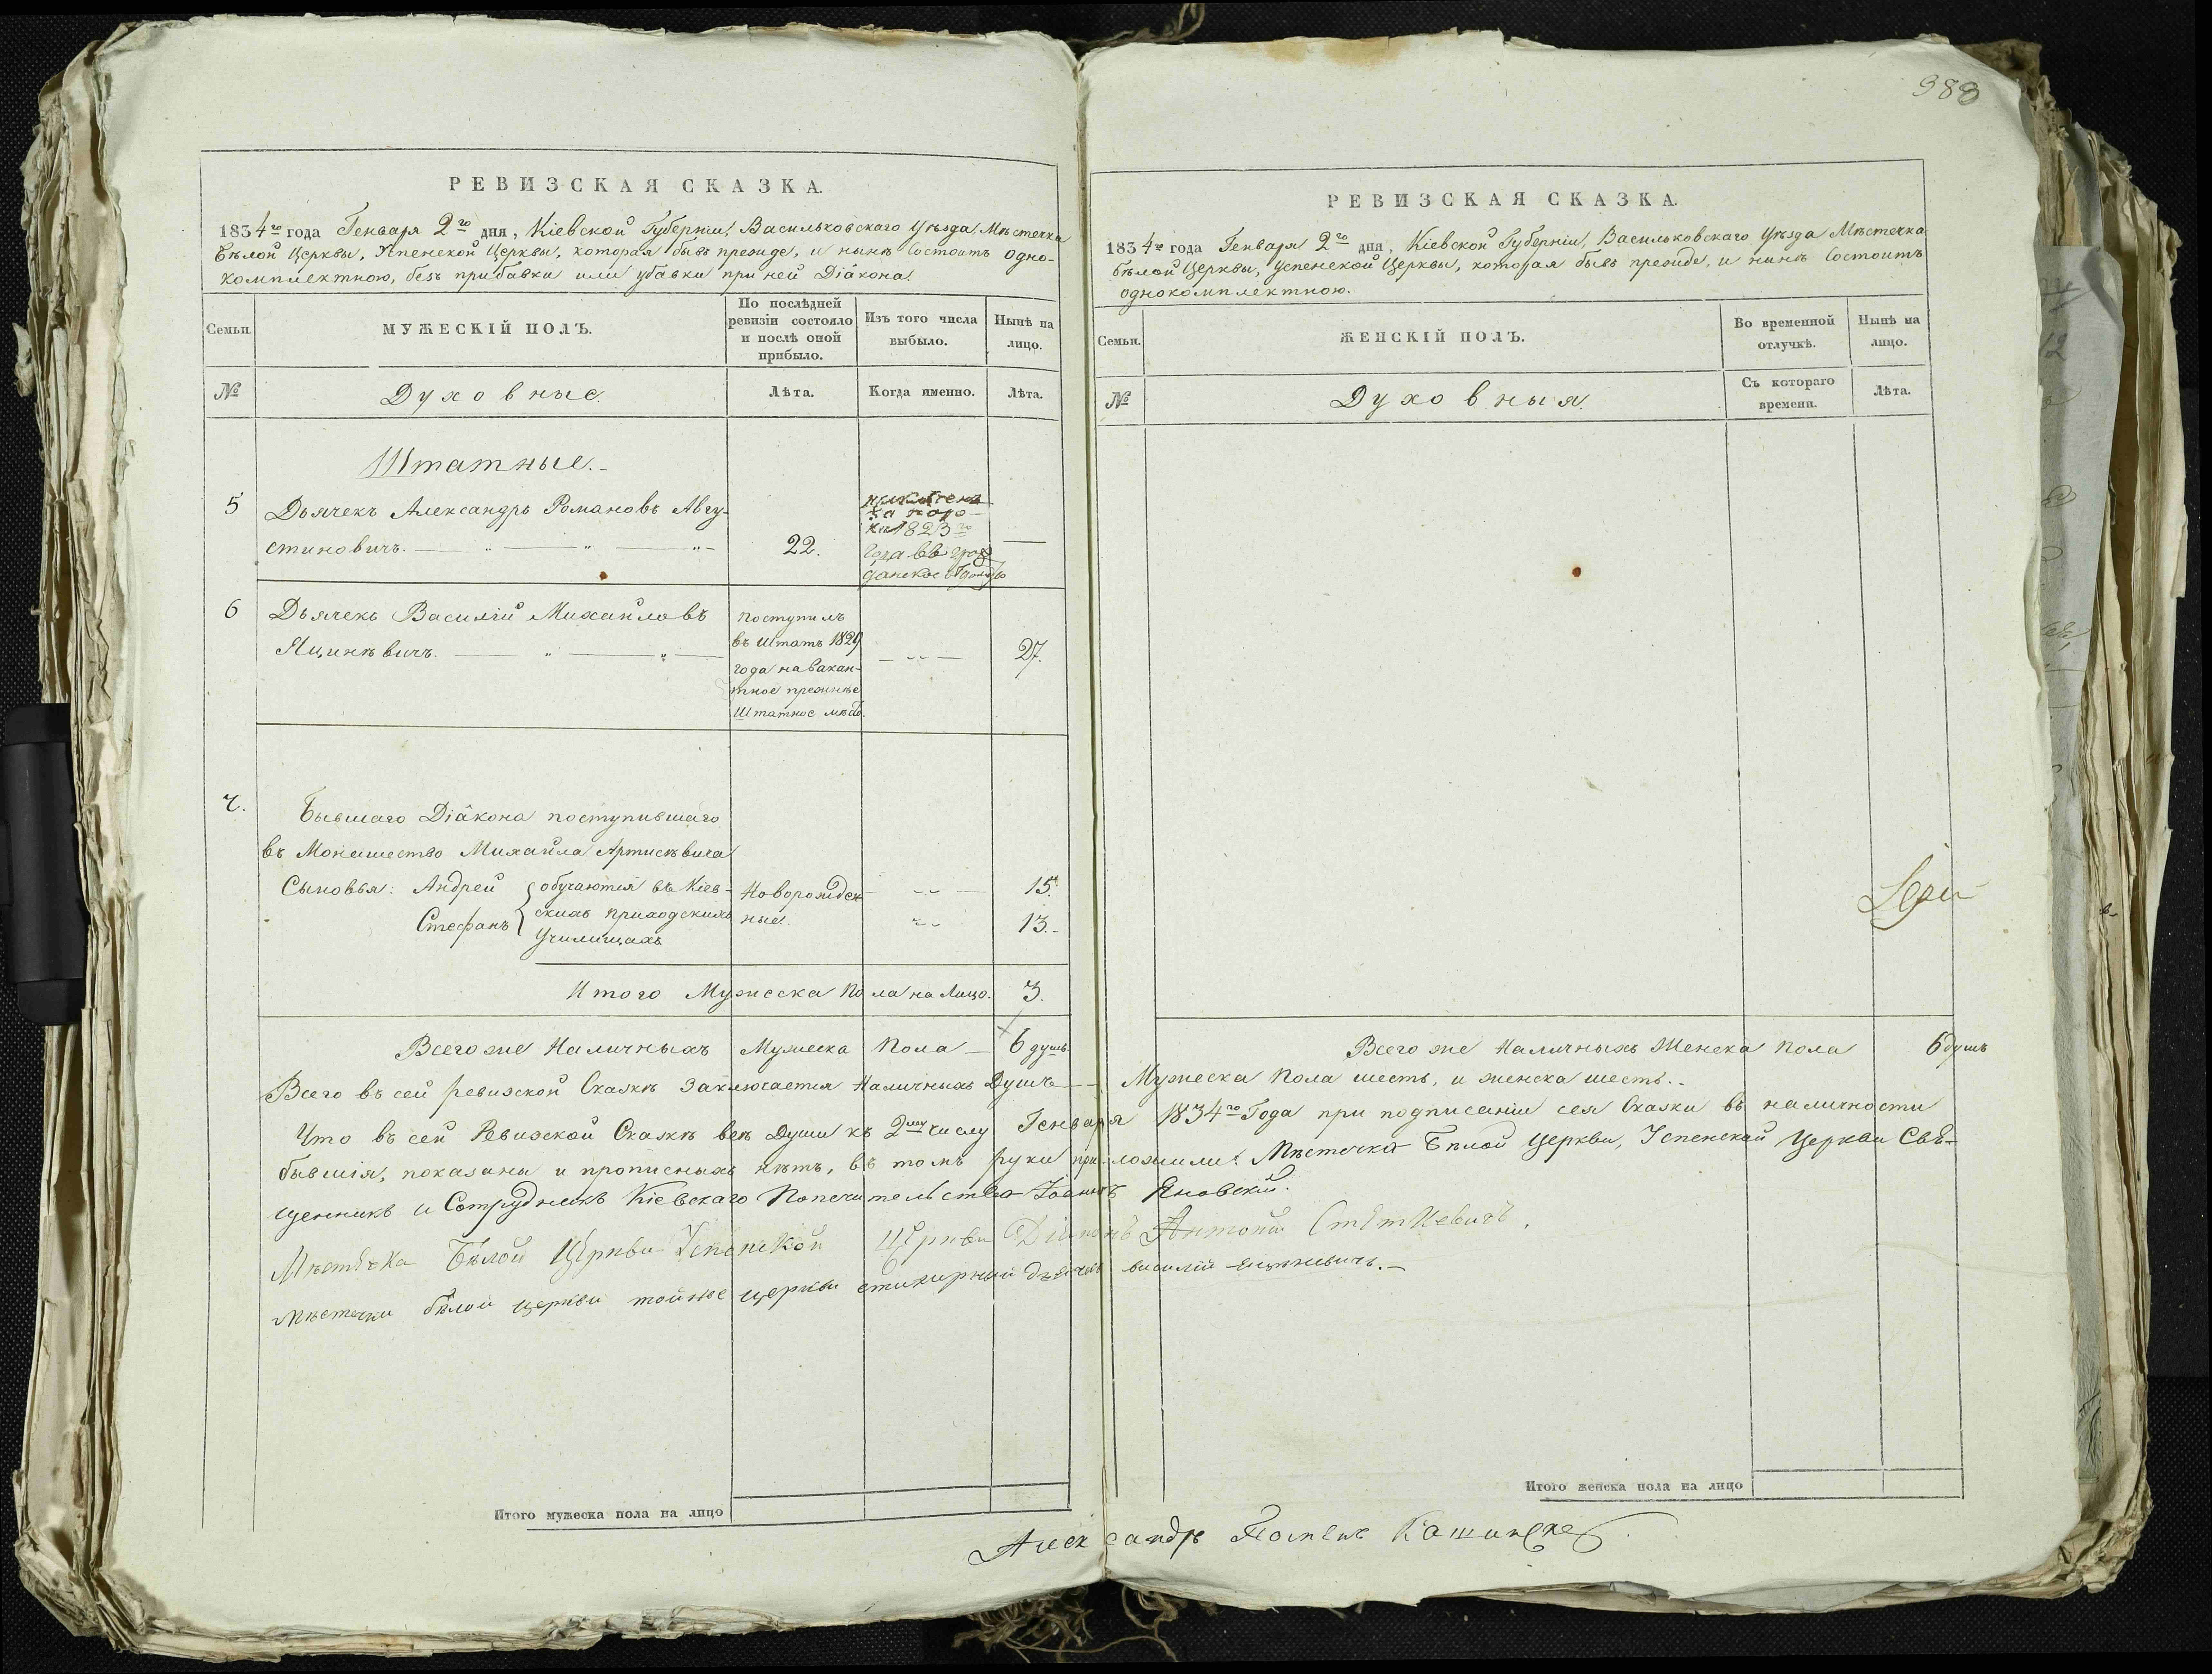 РЕВИЗСКАЯ СКАЗКА.
1834го года Генваря 2го дня, Кіевской Губерніи, Васильковскаго Уѣзда Мѣстечка
Бѣлой Церквы, Успенской Церквы, которая бывъ прежде, и нынѣ состоитъ одно-
комплектною, безъ прибавки или убавки при ней Діакона.
Семьи.
МУЖЕСКІЙ ПОЛЪ.
По послѣдней ревизіи состояло и послѣ оной прибыло.
Изъ того числа выбыло.
Нынѣ на лицо.
№
Духовные.
Лѣта.
Когда именно.
Лѣта.
Штатные.-
5 Дьячекъ Александръ Романовъ Авгу-
стиновичъ. 22.
1823го
года въ граж
данское
6 Дьячекъ Василій Михайловъ
Яцинѣвичъ. 27.
поступилъ
въ Штатъ 1829
года на вакан-
тное прежнѣе
Штатное мѣсто.
7. Бывшаго Діакона поступившаго
въ Монашество Михаила Артисѣвича
Сыновья: Андрей обучаются въ Кіев- Новорожден 15.
Стефанъ скихъ приходскихъ ные. 13.-
Училищахъ
Итого Мужеска Пола на Лицо. 3.
Всего же Наличныхъ Мужеска Пола — 6 душъ.
Всего въ сей ревизской Сказкѣ заключается Наличныхъ Душъ — Мужеска Пола шесть, и женска шесть.-
Что въ сей Ревизской Сказкѣ всѣ Души къ 2му числу Генваря 1834го Года при подписаніи сея Сказки въ наличности
бывшія, показаны и прописныхъ нѣтъ, въ томъ руки приложили: Мѣстечка Бѣлой Церкви, Успенской Церкви Свя-
щенникъ и Сотрудникъ Кіевскаго Попечительства Іоаннъ Яновскій.
Мѣстечка Бѣлой Церкви Успенской Церкви Діаконъ Антоній
мѣстечки бѣлой церкви тойже церкви стихирный дьячекъ василій яцинкевичъ.—
Итого мужеска пола на лицо
988
РЕВИЗСКАЯ СКАЗКА.
1834го года Генваря 2го дня, Кіевской Губерніи, Васильковскаго Уѣзда Мѣстечка
Бѣлой Церквы, Успенской Церквы, которая бывъ прежде, и нынѣ состоитъ
однокомплектною.
Семьи.
ЖЕНСКІЙ ПОЛЪ.
Во временной отлучкѣ.
Нынѣ на лицо.
№
Духовныя.
Съ котораго времени.
Лѣта.
Всего же Наличныхъ Женска пола 6 душъ
Итого женска пола на лицо
Александръ